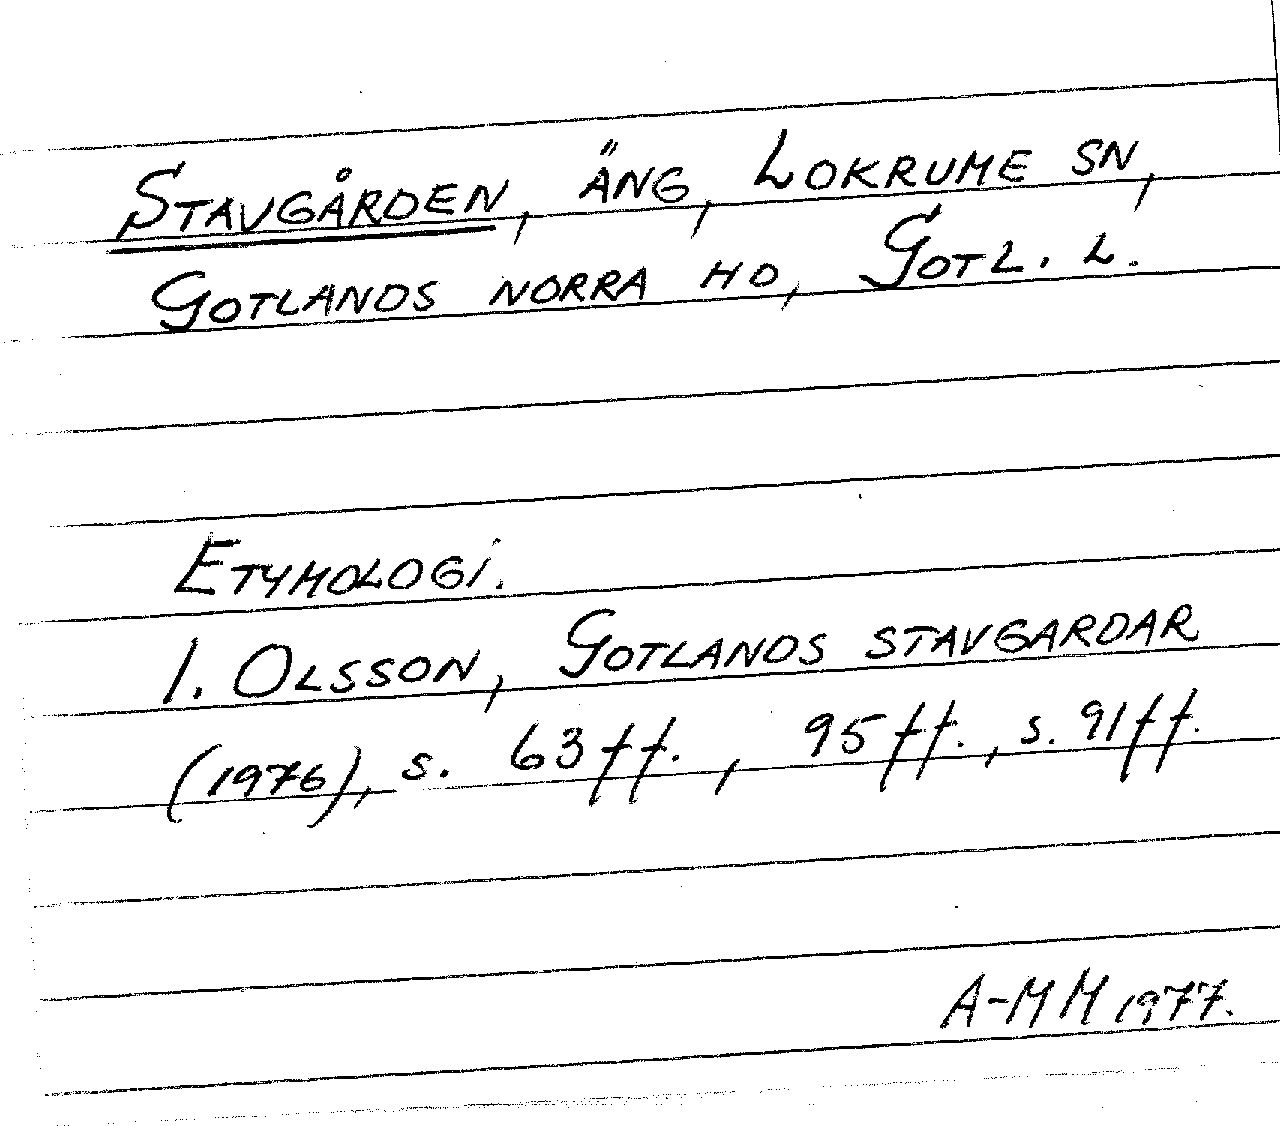 STAVGÅRDEN, ÄNG, LOKRUME SN,
GOTLANDS NORRA HD, GOTL. L.
ETYMOLOGI.
I. OLSSON, GOTLANDS STAVGARDAR
(1976), s. 63 ff., 95 ff., s. 91 ff.
A-MM 1977.